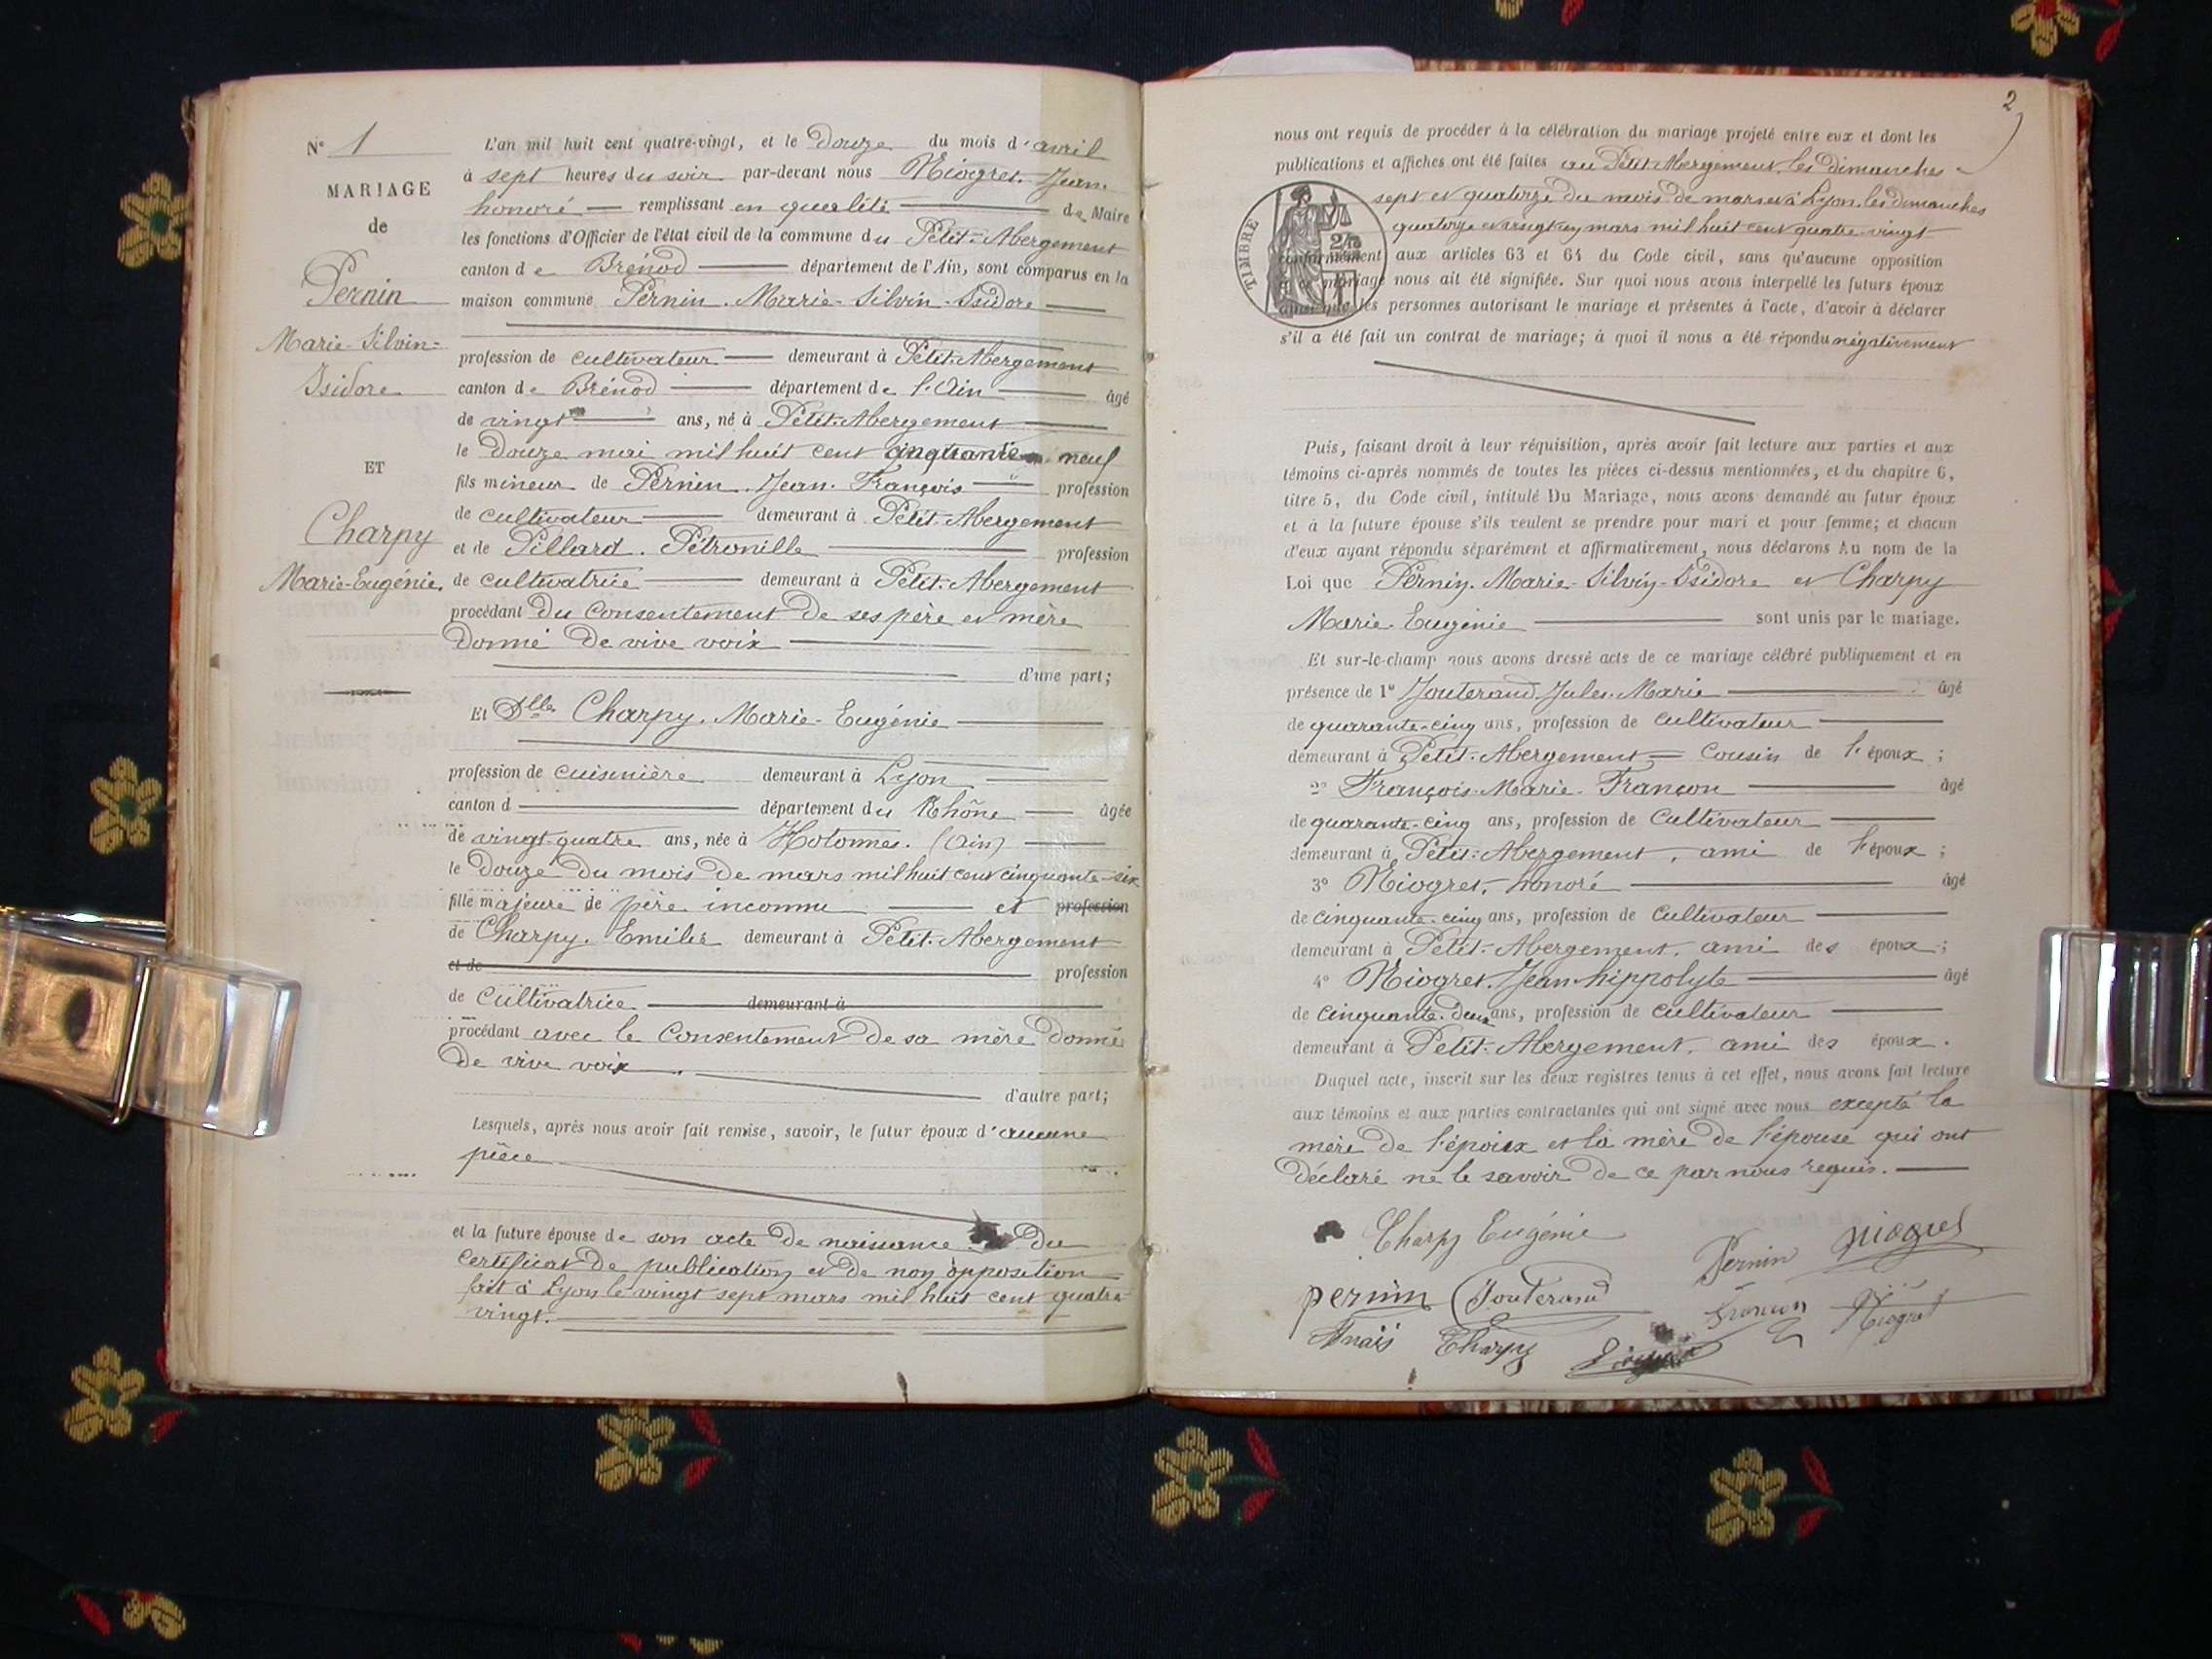 N° 1
MARIAGE
de
Pernin
Marie-Silvin-
Isidore
ET
Charpy
Marie-Eugénie.
L'an mil huit cent quatre-vingt, et le douze du mois d'avril
à sept heures du soir par-devant nous Niogret. Jean.
honoré remplissant en qualité de Maire
les fonctions d'Officier de l'état civil de la commune du Petit-Abergement
canton de Brénod département de l'Ain, sont comparus en la
maison commune Pernin. Marie-Silvin-Isidore
profession de cultivateur demeurant à Petit-Abergement
canton de Brénod département de l'Ain âgé
de vingt ans, né à Petit-Abergement
le douze mai mil huit cent cinquante neuf
fils mineur de Pernin. Jean. François profession
de cultivateur demeurant à Petit-Abergement
et de Pillard. Pétronille profession
de cultivatrice demeurant à Petit-Abergement
procédant du consentement de ses père et mère
donné de vive voix
d'une part;
Et Dlle Charpy. Marie-Eugénie
profession de cuisinière demeurant à Lyon
canton d département du Rhône âgée
de vingt-quatre ans, née à Hotonnes. (Ain)
le douze du mois de mars mil huit cent cinquante-six
fille majeure de père inconnu et profession
de Charpy. Emilie demeurant à Petit-Abergement
et de profession
de cultivatrice demeurant à
procédant avec le consentement de sa mère donné
de vive voix.
d'autre part;
Lesquels, après nous avoir fait remise, savoir, le futur époux d'aucune
pièce
et la future épouse de son acte de naissance du
certificat de publication et de non opposition
fait à Lyon le vingt sept mars mil huit cent quatre
vingt.
2
nous ont requis de procéder à la célébration du mariage projeté entre eux et dont les
publications et affiches ont été faites au Petit-Abergement, les dimanches
sept et quatorze du mois de mars et à Lyon, les dimanches
quatorze et vingt un mars mil huit cent quatre-vingt
TIMBRE
conformément aux articles 63 et 64 du Code civil, sans qu'aucune opposition
à ce mariage nous ait été signifiée. Sur quoi nous avons interpellé les futurs époux
ainsi que les personnes autorisant le mariage et présentes à l'acte, d'avoir à déclarer
s'il a été fait un contrat de mariage; à quoi il nous a été répondu négativement
Puis, faisant droit à leur réquisition, après avoir fait lecture aux parties et aux
témoins ci-après nommés de toutes les pièces ci-dessus mentionnées, et du chapitre 6,
titre 5, du Code civil, intitulé Du Mariage, nous avons demandé au futur époux
et à la future épouse s'ils veulent se prendre pour mari et pour femme; et chacun
d'eux ayant répondu séparément et affirmativement, nous déclarons Au nom de la
Loi que Pernin. Marie-Silvin-Isidore et Charpy
Marie-Eugénie sont unis par le mariage.
Et sur-le-champ nous avons dressé acts de ce mariage célébré publiquement et en
présence de 1° Jouterand. Jules. Marie âgé
de quarante-cinq ans, profession de cultivateur
demeurant à Petit-Abergement cousin de l'époux;
2° François-Marie-Françon âgé
de quarante-cinq ans, profession de cultivateur
demeurant à Petit-Abergement, ami de l'époux;
3° Niogret, honoré âgé
de cinquante-cinq ans, profession de cultivateur
demeurant à Petit-Abergement, ami des époux;
4° Niogret. Jean-hippolyte âgé
de cinquante-deux ans, profession de cultivateur
demeurant à Petit-Abergement, ami des époux.
Duquel acte, inscrit sur les deux registres tenus à cet effet, nous avons fait lecture
aux témoins et aux parties contractantes qui ont signé avec nous excepté la
mère de l'époux et la mère de l'épouse qui ont
déclaré ne le savoir de ce par nous requis.
Charpy Eugénie
Pernin Niogret
pernin Jouterand
Françon Niogret
Anaïs Charpy